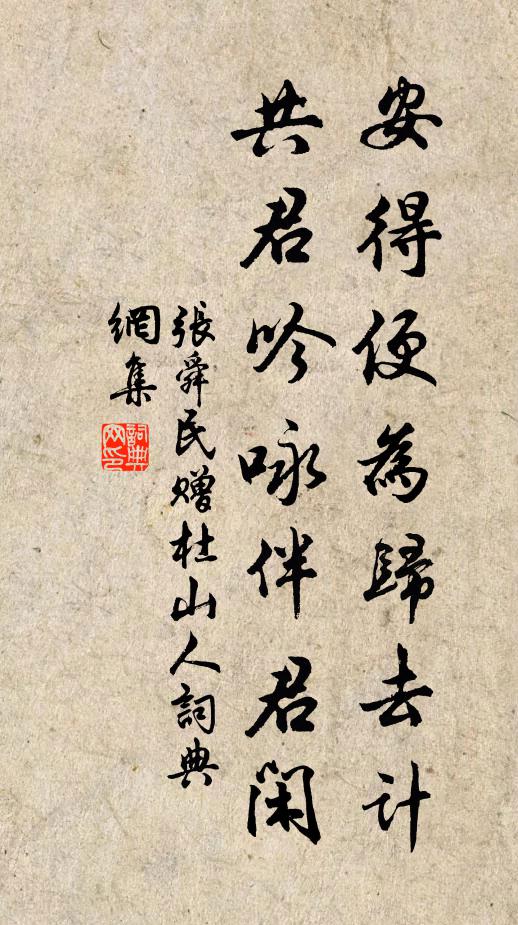 安得便為歸去計
共君吟咏伴君閑
張舜民贈杜山人詞典
網集
詞典
网印